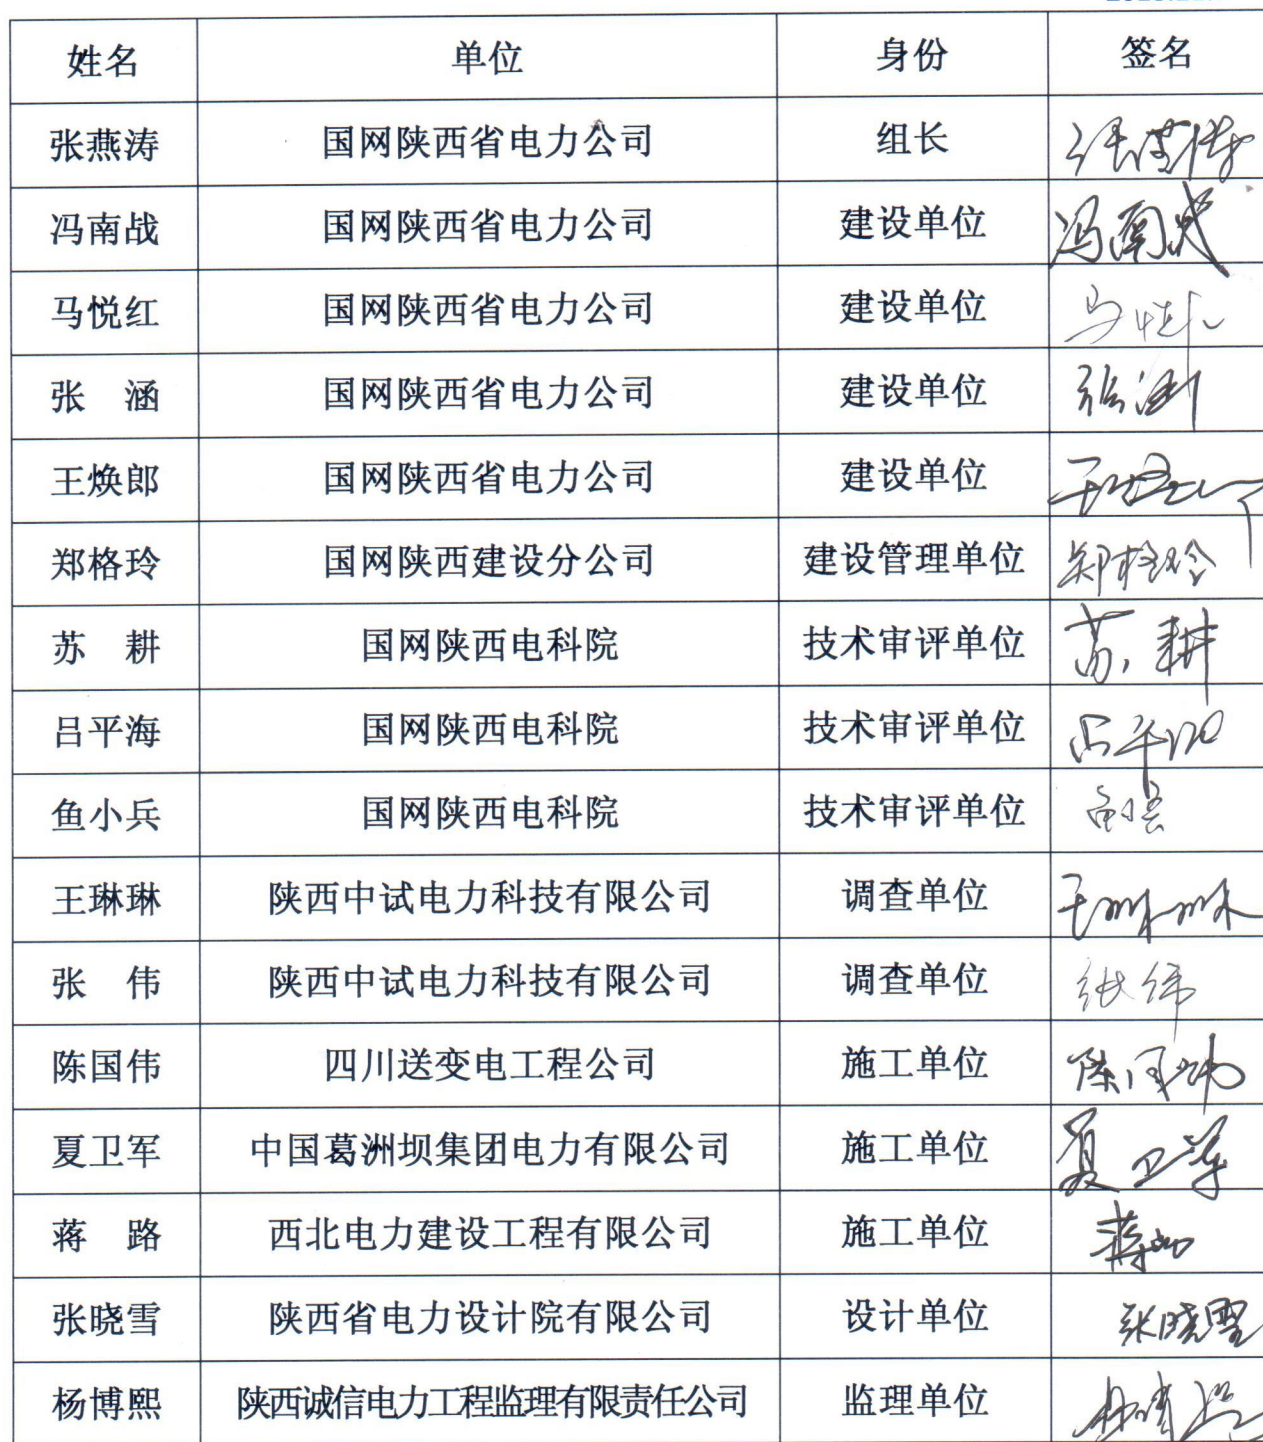 姓名 单位 身份 签名
张燕涛 国网陕西省电力公司 组长
冯南战 国网陕西省电力公司 建设单位 冯南战
马悦红 国网陕西省电力公司 建设单位
张 涵 国网陕西省电力公司 建设单位 张涵
王焕郎 国网陕西省电力公司 建设单位
郑格玲 国网陕西建设分公司 建设管理单位 郑格玲
苏 耕 国网陕西电科院 技术审评单位 苏耕
吕平海 国网陕西电科院 技术审评单位 吕平海
鱼小兵 国网陕西电科院 技术审评单位 鱼小兵
王琳琳 陕西中试电力科技有限公司 调查单位 王琳琳
张 伟 陕西中试电力科技有限公司 调查单位 张伟
陈国伟 四川送变电工程公司 施工单位 陈国伟
夏卫军 中国葛洲坝集团电力有限公司 施工单位 夏卫军
蒋 路 西北电力建设工程有限公司 施工单位 蒋路
张晓雪 陕西省电力设计院有限公司 设计单位 张晓雪
杨博熙 陕西诚信电力工程监理有限责任公司 监理单位